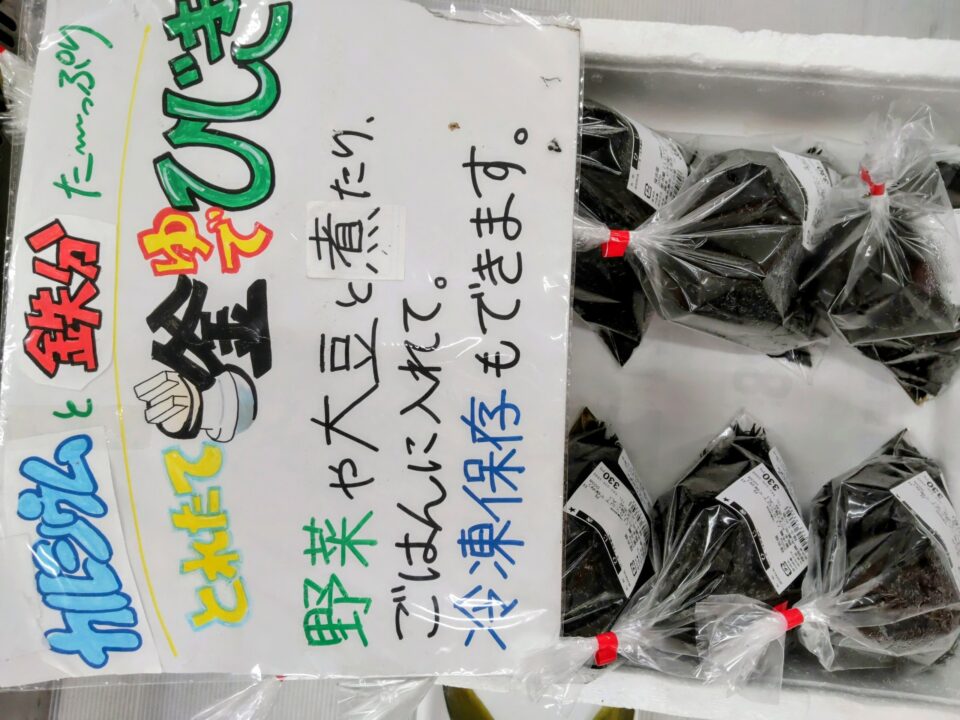 カルシウムと鉄分た〜〜っぷり
とれたて釜ゆでひじき
野菜や大豆と煮たり、
ごはんに入れて。
冷凍保存もできます。
330
330
330